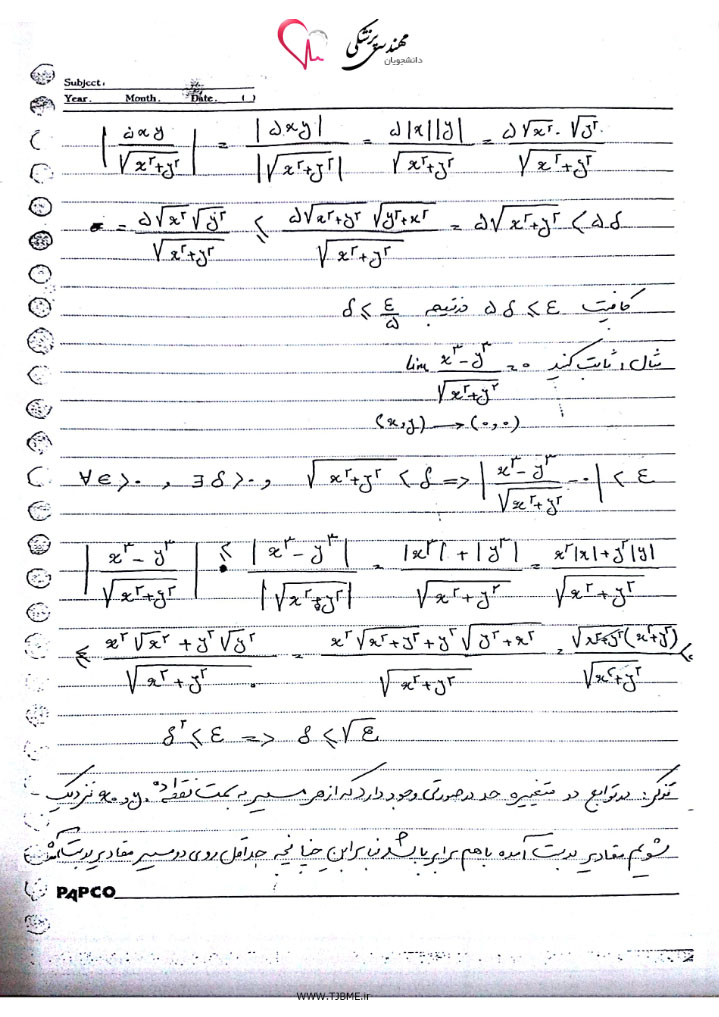 مهندسی پزشکی
دانشجویان
Subject:
Year. Month. Date. ( )
|۵xy / √(x²+y²)| = |۵xy| / |√(x²+y²)| = ۵|x||y| / √(x²+y²) = ۵√x² · √y² / √(x²+y²)
= ۵√x² √y² / √(x²+y²) ≤ ۵√(x²+y²) √(y²+x²) / √(x²+y²) = ۵√(x²+y²) < ۵δ
کافیست ۵δ ≤ ε درنتیجه δ ≤ ε/۵
مثال: ثابت کنید lim (x³ - y³) / √(x²+y²) = ۰
(x,y) → (۰,۰)
∀ε>۰ , ∃δ>۰ , √(x²+y²) < δ => |(x³ - y³) / √(x²+y²) - ۰| < ε
|(x³ - y³) / √(x²+y²)| ≤ |x³ - y³| / |√(x²+y²)| = (|x³| + |y³|) / √(x²+y²) = (x²|x| + y²|y|) / √(x²+y²)
≤ (x²√x² + y²√y²) / √(x²+y²) = (x²√(x²+y²) + y²√(y²+x²)) / √(x²+y²) = √(x²+y²) (x²+y²) / √(x²+y²) ≤
δ² ≤ ε => δ ≤ √ε
تذکر: در توابع دو متغییره حد درصورتی وجود دارد که از هر مسیر به سمت نقطه x₀ و y₀ نزدیک
شویم مقادیر بدست آمده با هم برابر باشد. بنابراین چنانچه حداقل روی دو مسیر مقادیر بدست آمده
PAPCO
WWW.TJBME.ir